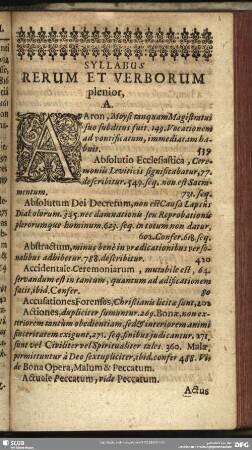 SYLLABUS
RERUM ET VERBORUM
plenior,
A.
AAron, Moysi tanquam Magistratui
suo subditus fuit. 149. Vocationem
ad pontificatum, immediatam ha-
buit. 519
Absolutio Ecclesiastica, Cere-
moniis Leviticis significabatur, 77.
describitur. 549. seq. non est Sacra-
mentum. 729. seq.
Absolutum Dei Decretum, non est Causa Lapsus
Diabolorum. 345. nec damnationis seu Reprobationis
plerorumque hominum. 627. seq. in totum non datur,
602. Confer. 618. seq.
Abstractum, minus benè in prædicationibus per so-
nalibus adhibetur. 788. describitur. 420
Accidentale Ceremoniarum, mutabile est, 64.
servandum est in tantum, quantum ad ædificationem
facit, ibid. Confer. 80
Accusationes Forenses, Christianis licitæ sunt, 402
Actiones, dupliciter sumuntur. 269. Bonæ, non ex-
teriorem tantùm obedientiam, sed & interiorem animi
sinceritatem exigunt, 271. seq. finibus judicantur. 271.
sunt vel Civiliter vel Spiritualiter tales. 360. Malæ,
permittuntur à Deo sextupliciter, ibid. confer 488. Vi-
de Bona Opera, Malum & Peccatum.
Actuale Peccatum, vide Peccatum.
Actus
SLUB
DFG